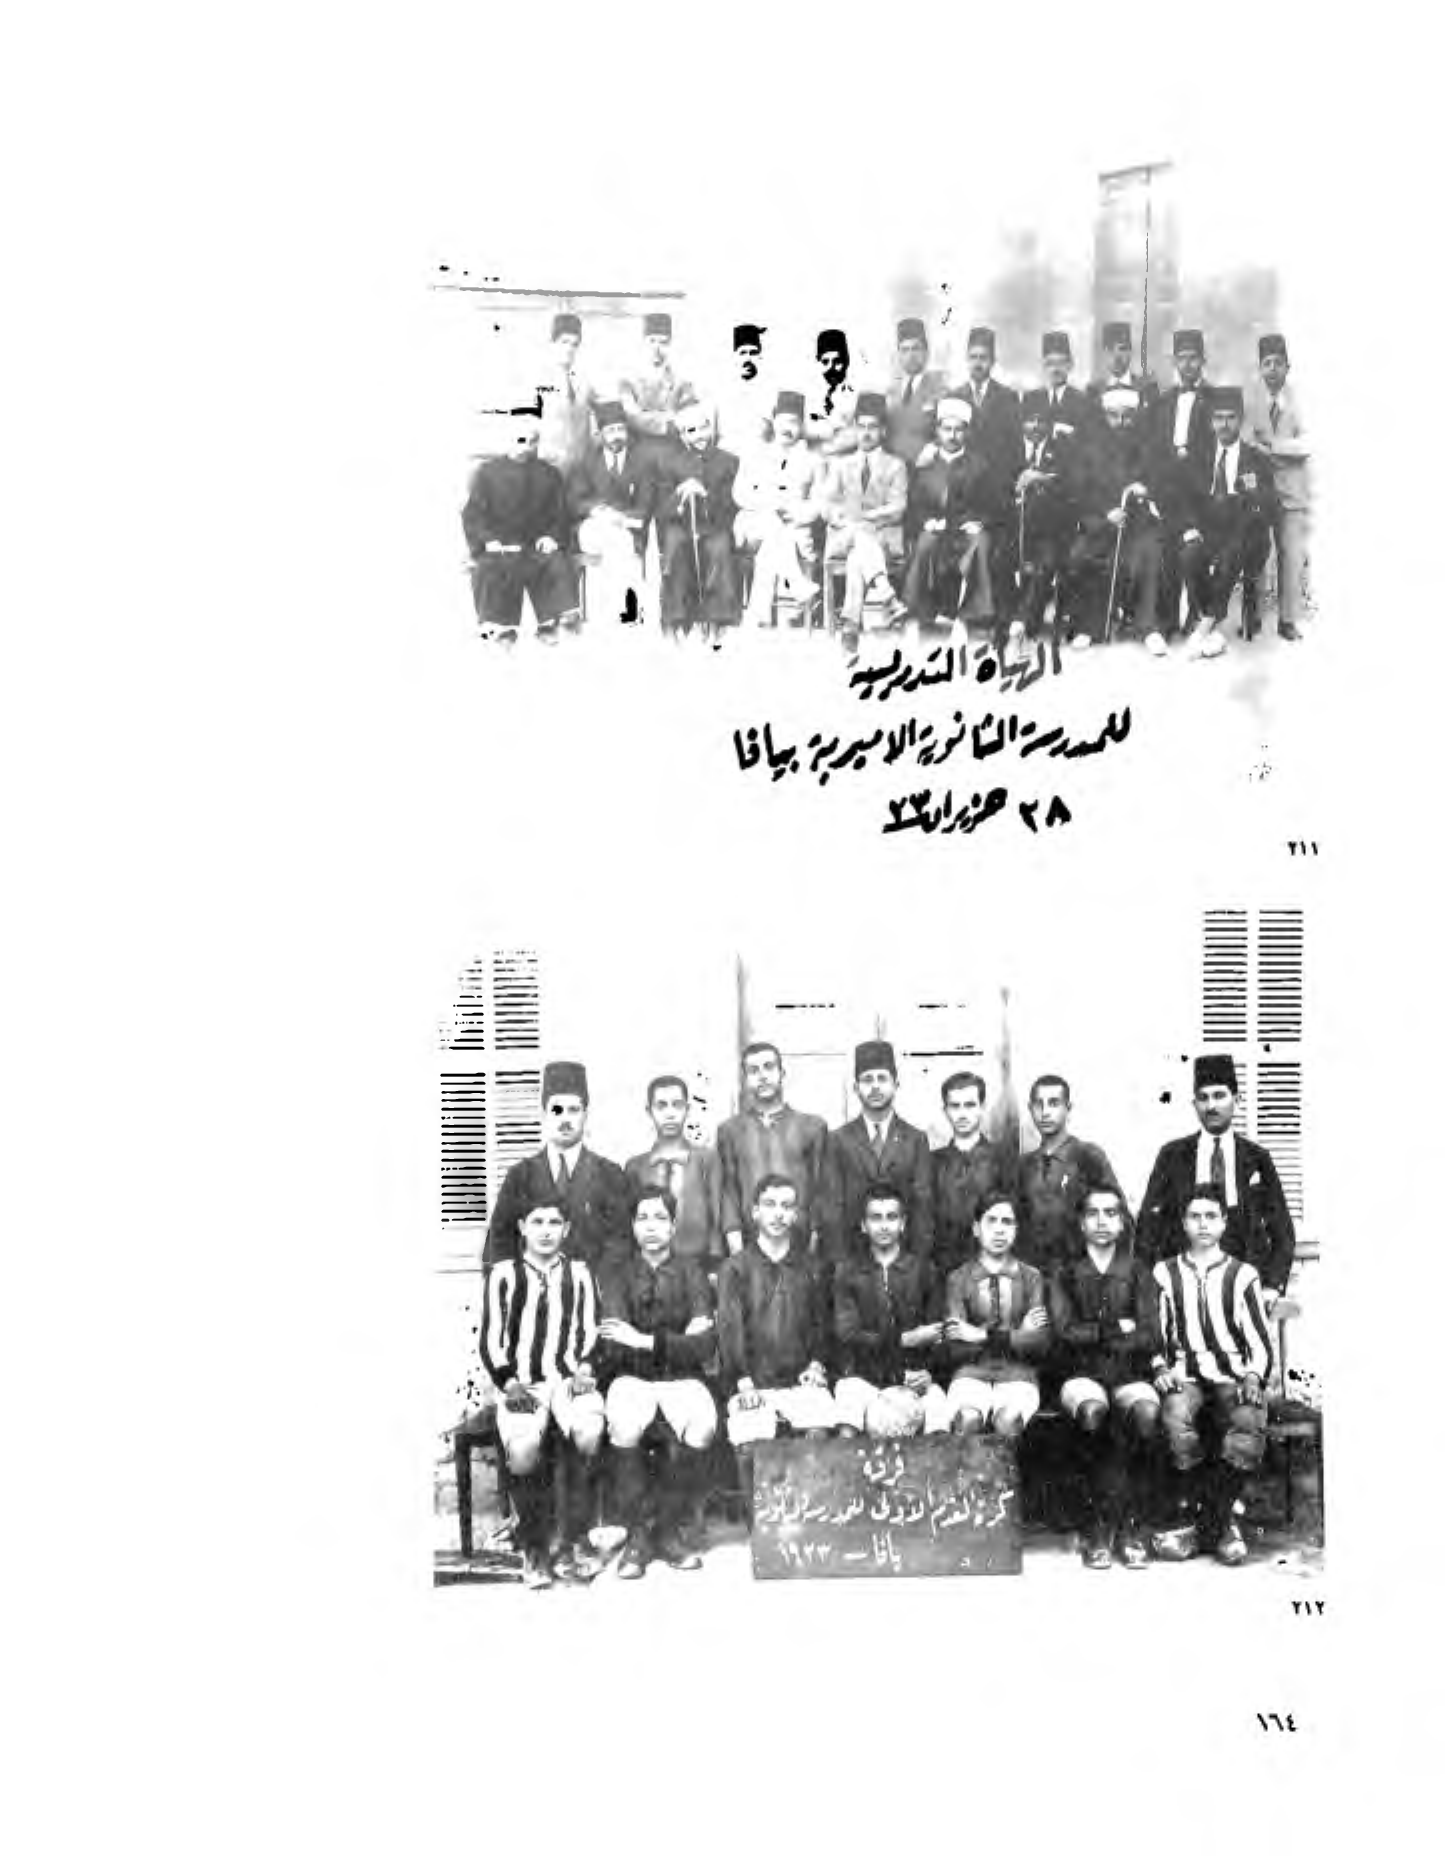 الهيأة التدريسية
للمدرسة الثانوية الاميرية بيافا
٢٨ حزيران ٢٣
٢١١
فرقة
كرة القدم الاولى للمدرسة الثانوية
يافا - ١٩٢٣
٢١٢
١٦٤